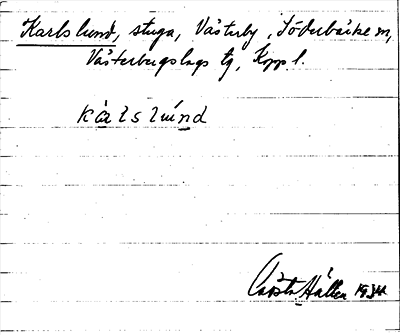 Karlslund, stuga, Västerby, Söderbärke sn,
Västerbergslags tg, Kopp. l.
kàlslúnd
Gösta Hallen 1934